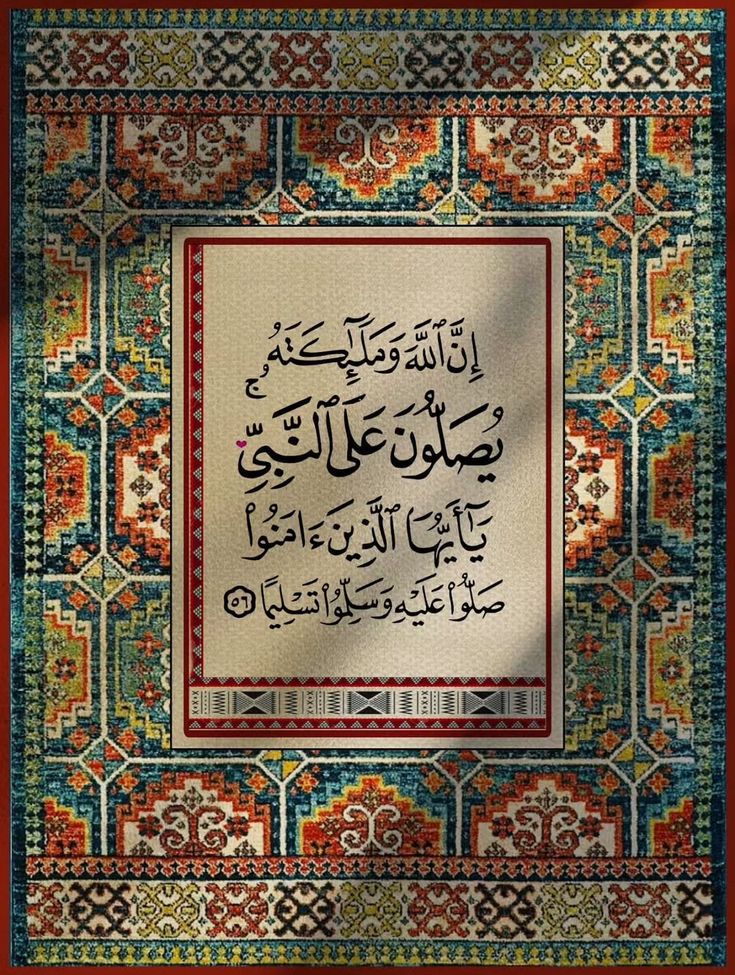 إِنَّ ٱللَّهَ وَمَلَـٰٓئِكَتَهُۥ
يُصَلُّونَ عَلَى ٱلنَّبِىِّ ۚ
يَـٰٓأَيُّهَا ٱلَّذِينَ ءَامَنُوا۟
صَلُّوا۟ عَلَيْهِ وَسَلِّمُوا۟ تَسْلِيمًا ٥٦